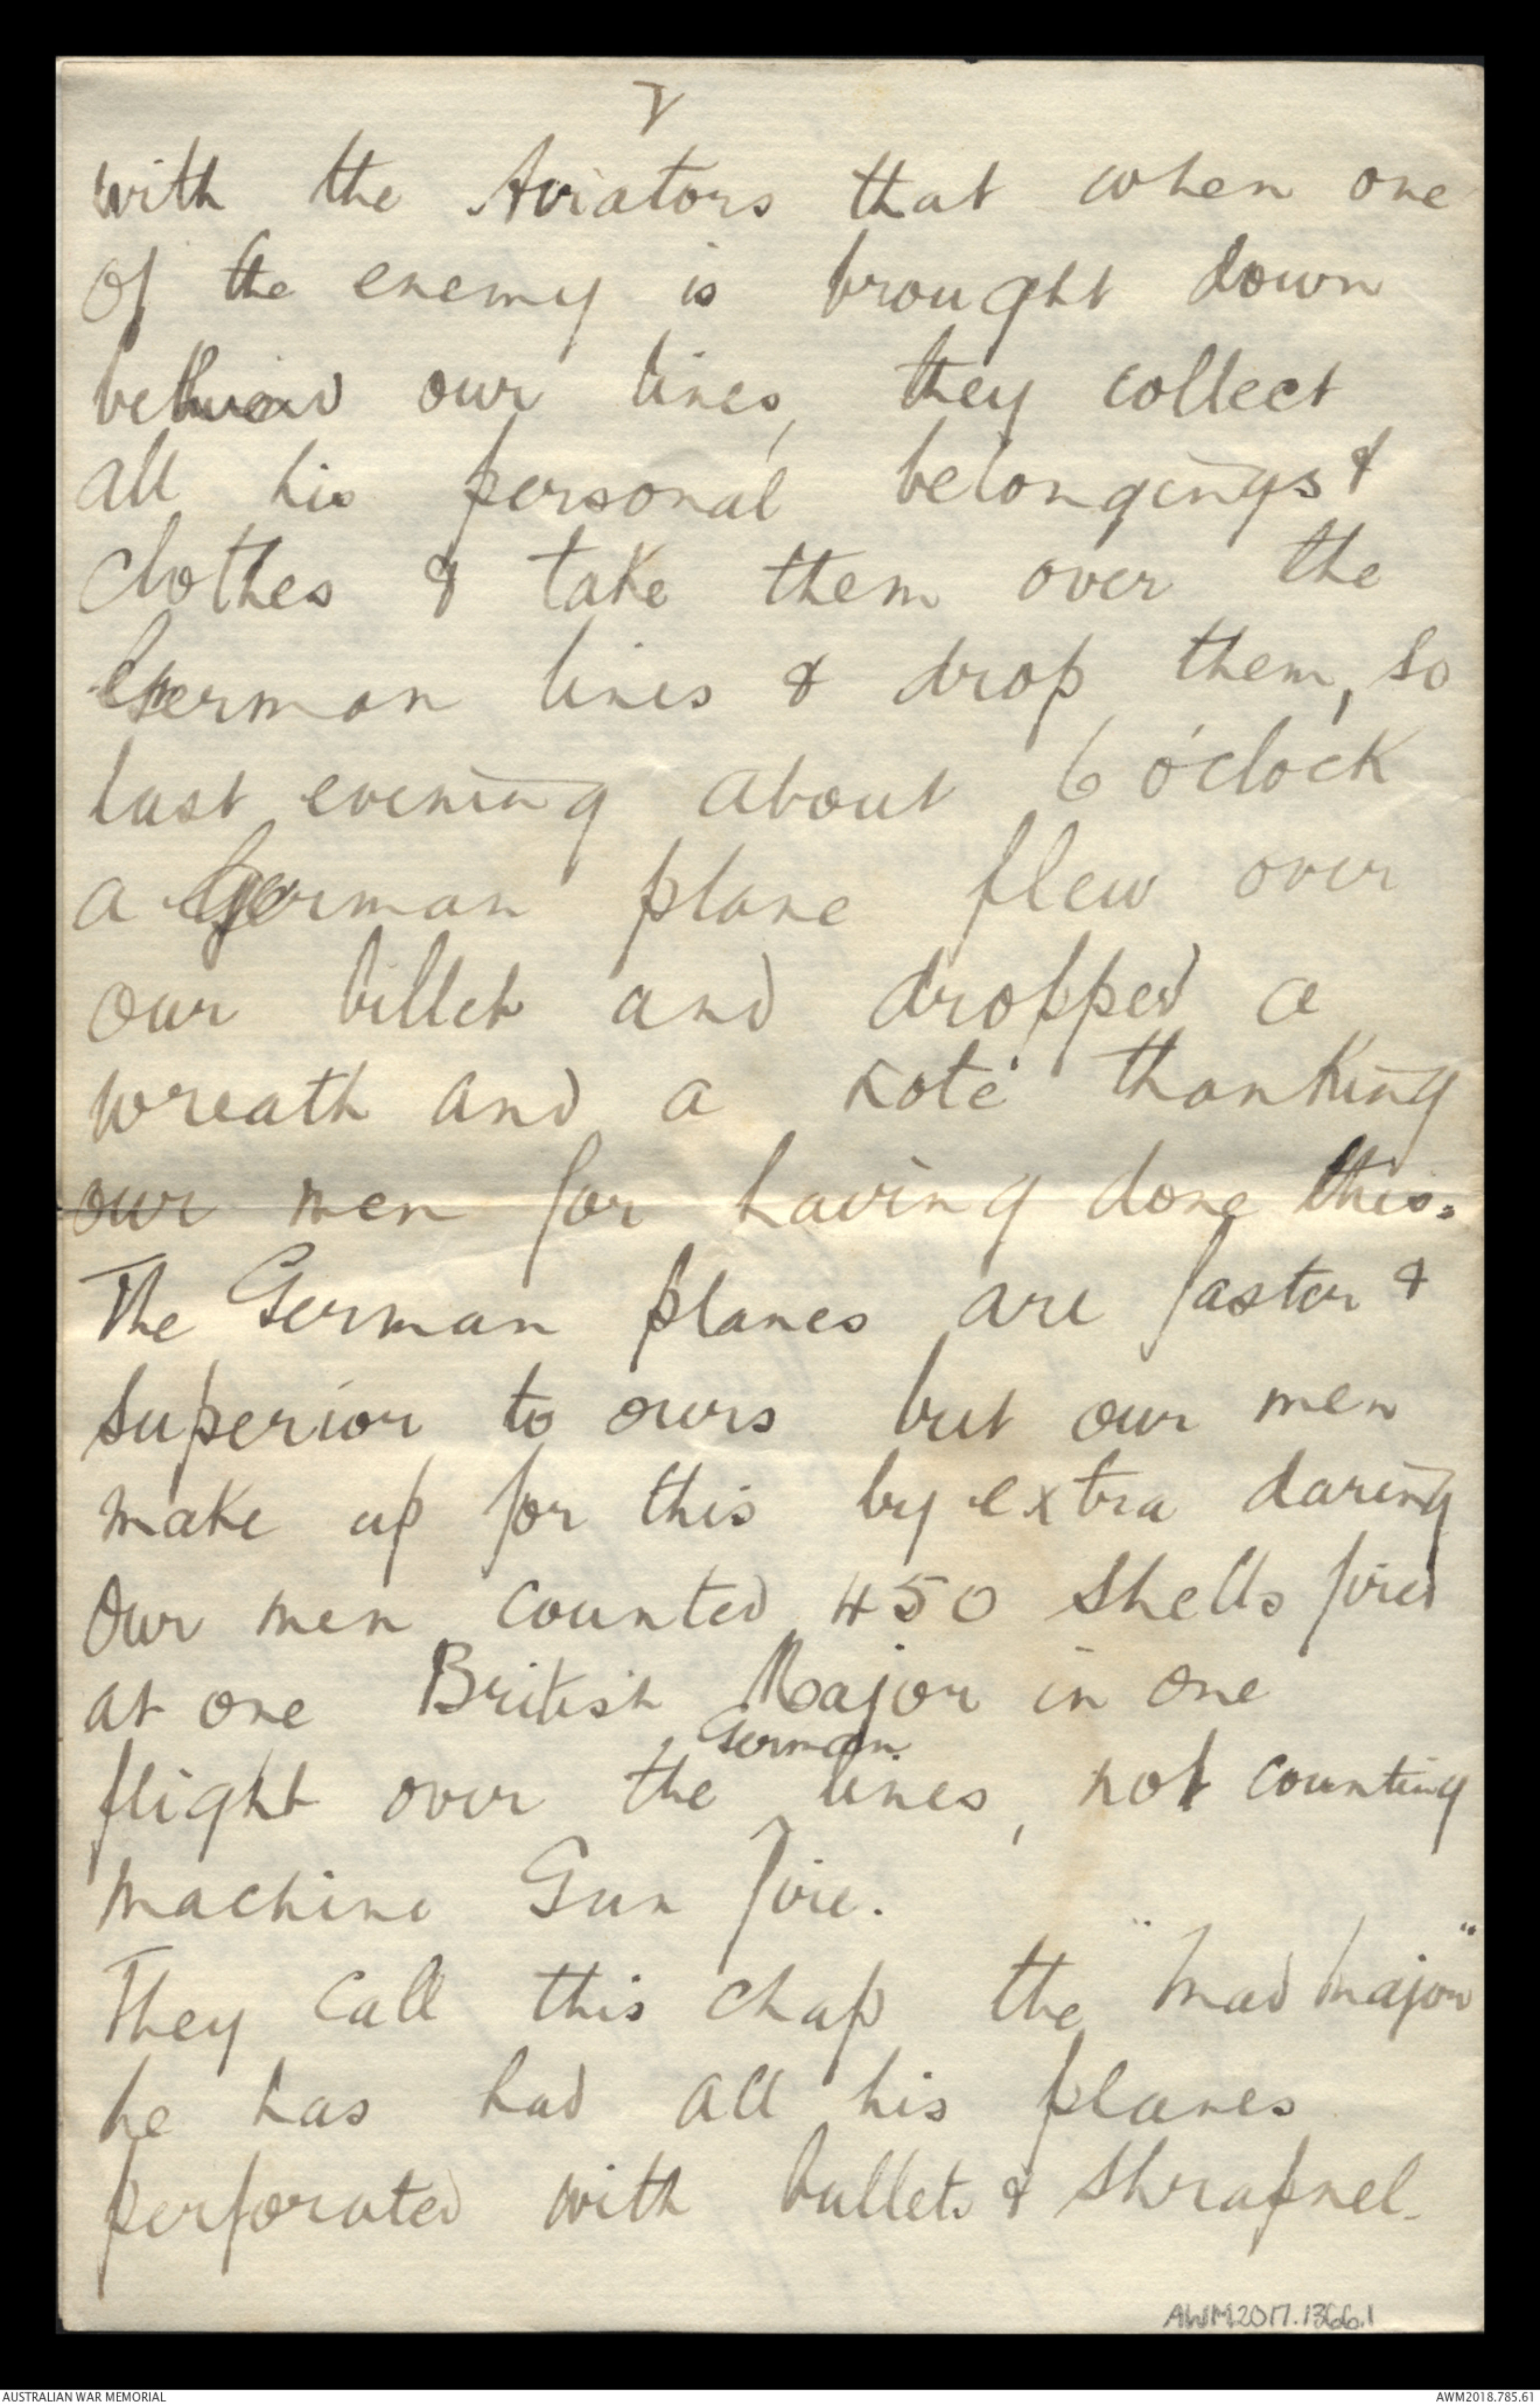 V
with the Aviators that when one
of the enemy is brought down
behind our lines, they collect
all his personal belongings &
clothes & take them over the
German lines & drop them, so
last evening about 6 o'clock
a German plane flew over
our billet and dropped a
wreath and a note thanking
our men for having done this.
The German planes are faster &
superior to ours but our men
make up for this by extra daring
Our men counted 450 shells fired
at one British Major in one
German
flight over the lines, not counting
machine Gun fire.
They call this chap the "Mad Major"
he has had all his planes
perforated with bullets & shrapnel.
AWM2017.1366.1
AUSTRALIAN WAR MEMORIAL
AWM2018.785.61